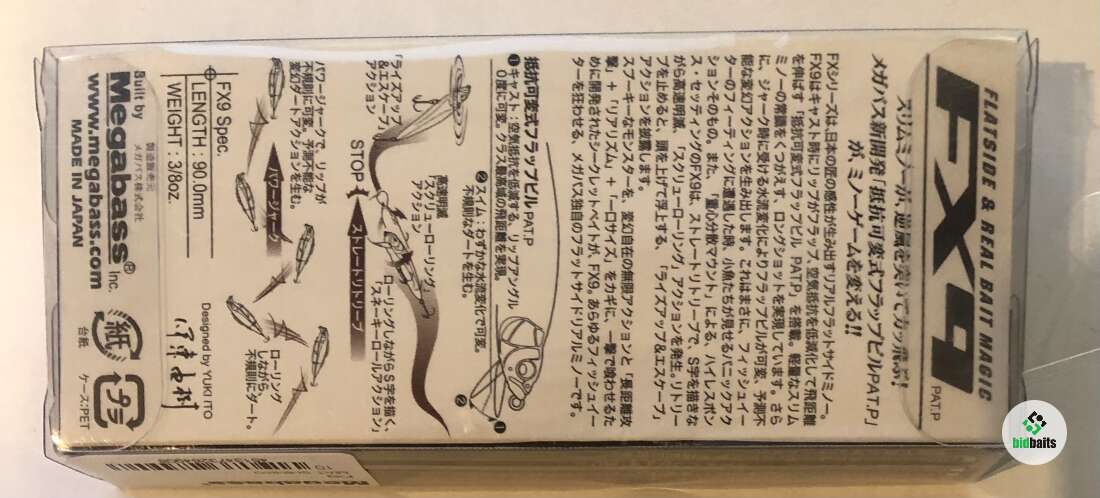 FLATSIDE & REAL BAIT MAGIC
FX9
PAT.P
スリムミノーが、逆風を突いてカッ飛ぶ!
メガバス新開発「抵抗可変式フラップビルPAT.P」
が、ミノーゲームを変える!!
FXシリーズは、日本の匠の感性が生み出すリアルフラットサイドミノー。
FX9はキャスト時にリップがフラップ、空気抵抗を低減化して飛距離
を伸ばす「抵抗可変式フラップビル PAT.P」を搭載。軽量なスリム
ミノーの常識をくつがえす、ロングショットを実現しています。さら
に、ジャーク時に受ける水流変化によりフラップビルが可変、予測不
能な変幻アクションを生み出します。これはまさに、フィッシュイー
ターのフィーディングに遭遇した時、小魚たちが見せるパニックアク
ションそのもの。また、「重心分散マウント」による、ハイレスポン
ス・セッティングのFX9は、ストレートリトリーブで、S字を描きな
がら高速明滅、「スクリューローリング」アクションを発生。リトリー
ブを止めると、頭を上げて浮上する、「ライズアップ&エスケープ」
アクションを披露します。
スプーキーなモンスターを、変幻自在の無限アクションと「長距離攻
撃」+「リアリズム」+「一口サイズ」をカギに、一撃で喰わせるた
めに開発されたシークレットベイトが、FX9。あらゆるフィッシュイー
ターを狂わせる、メガバス独自のフラットサイドリアルミノーです。
抵抗可変式フラップビル PAT.P
❶キャスト：空気抵抗を低減する、リップアングル
0度に可変。クラス最高峰の飛距離を実現。
❷スイム：わずかな水流変化で可変。
不規則なダートを生む。
❶
❷
「ライズアップ
&エスケープ」
アクション
STOP
高速明滅
「スクリューローリング」
アクション
ストレートリトリーブ
ローリングしながらS字を描く、
「スネーキーロールアクション」
パワージャークで、リップが
不規則に可変。予測不能な
変幻ダートアクションを生む。
パワージャーク
ローリング
しながら
不規則にダート。
FX9 Spec.
LENGTH : 90.0mm
WEIGHT : 3/8oz.
Designed by YUKI ITO
Built by
製造販売元
メガバス株式会社
Megabass® Inc.
www.megabass.com
MADE IN JAPAN
紙
台紙
プラ
ケース:PET
Megabass
bidbaits